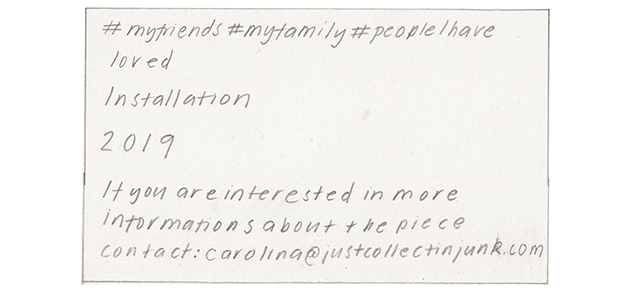 #myfriends #myfamily #peopleIhave
loved
Installation
2019
If you are interested in more
informations about the piece
contact: carolina@justcollectinjunk.com